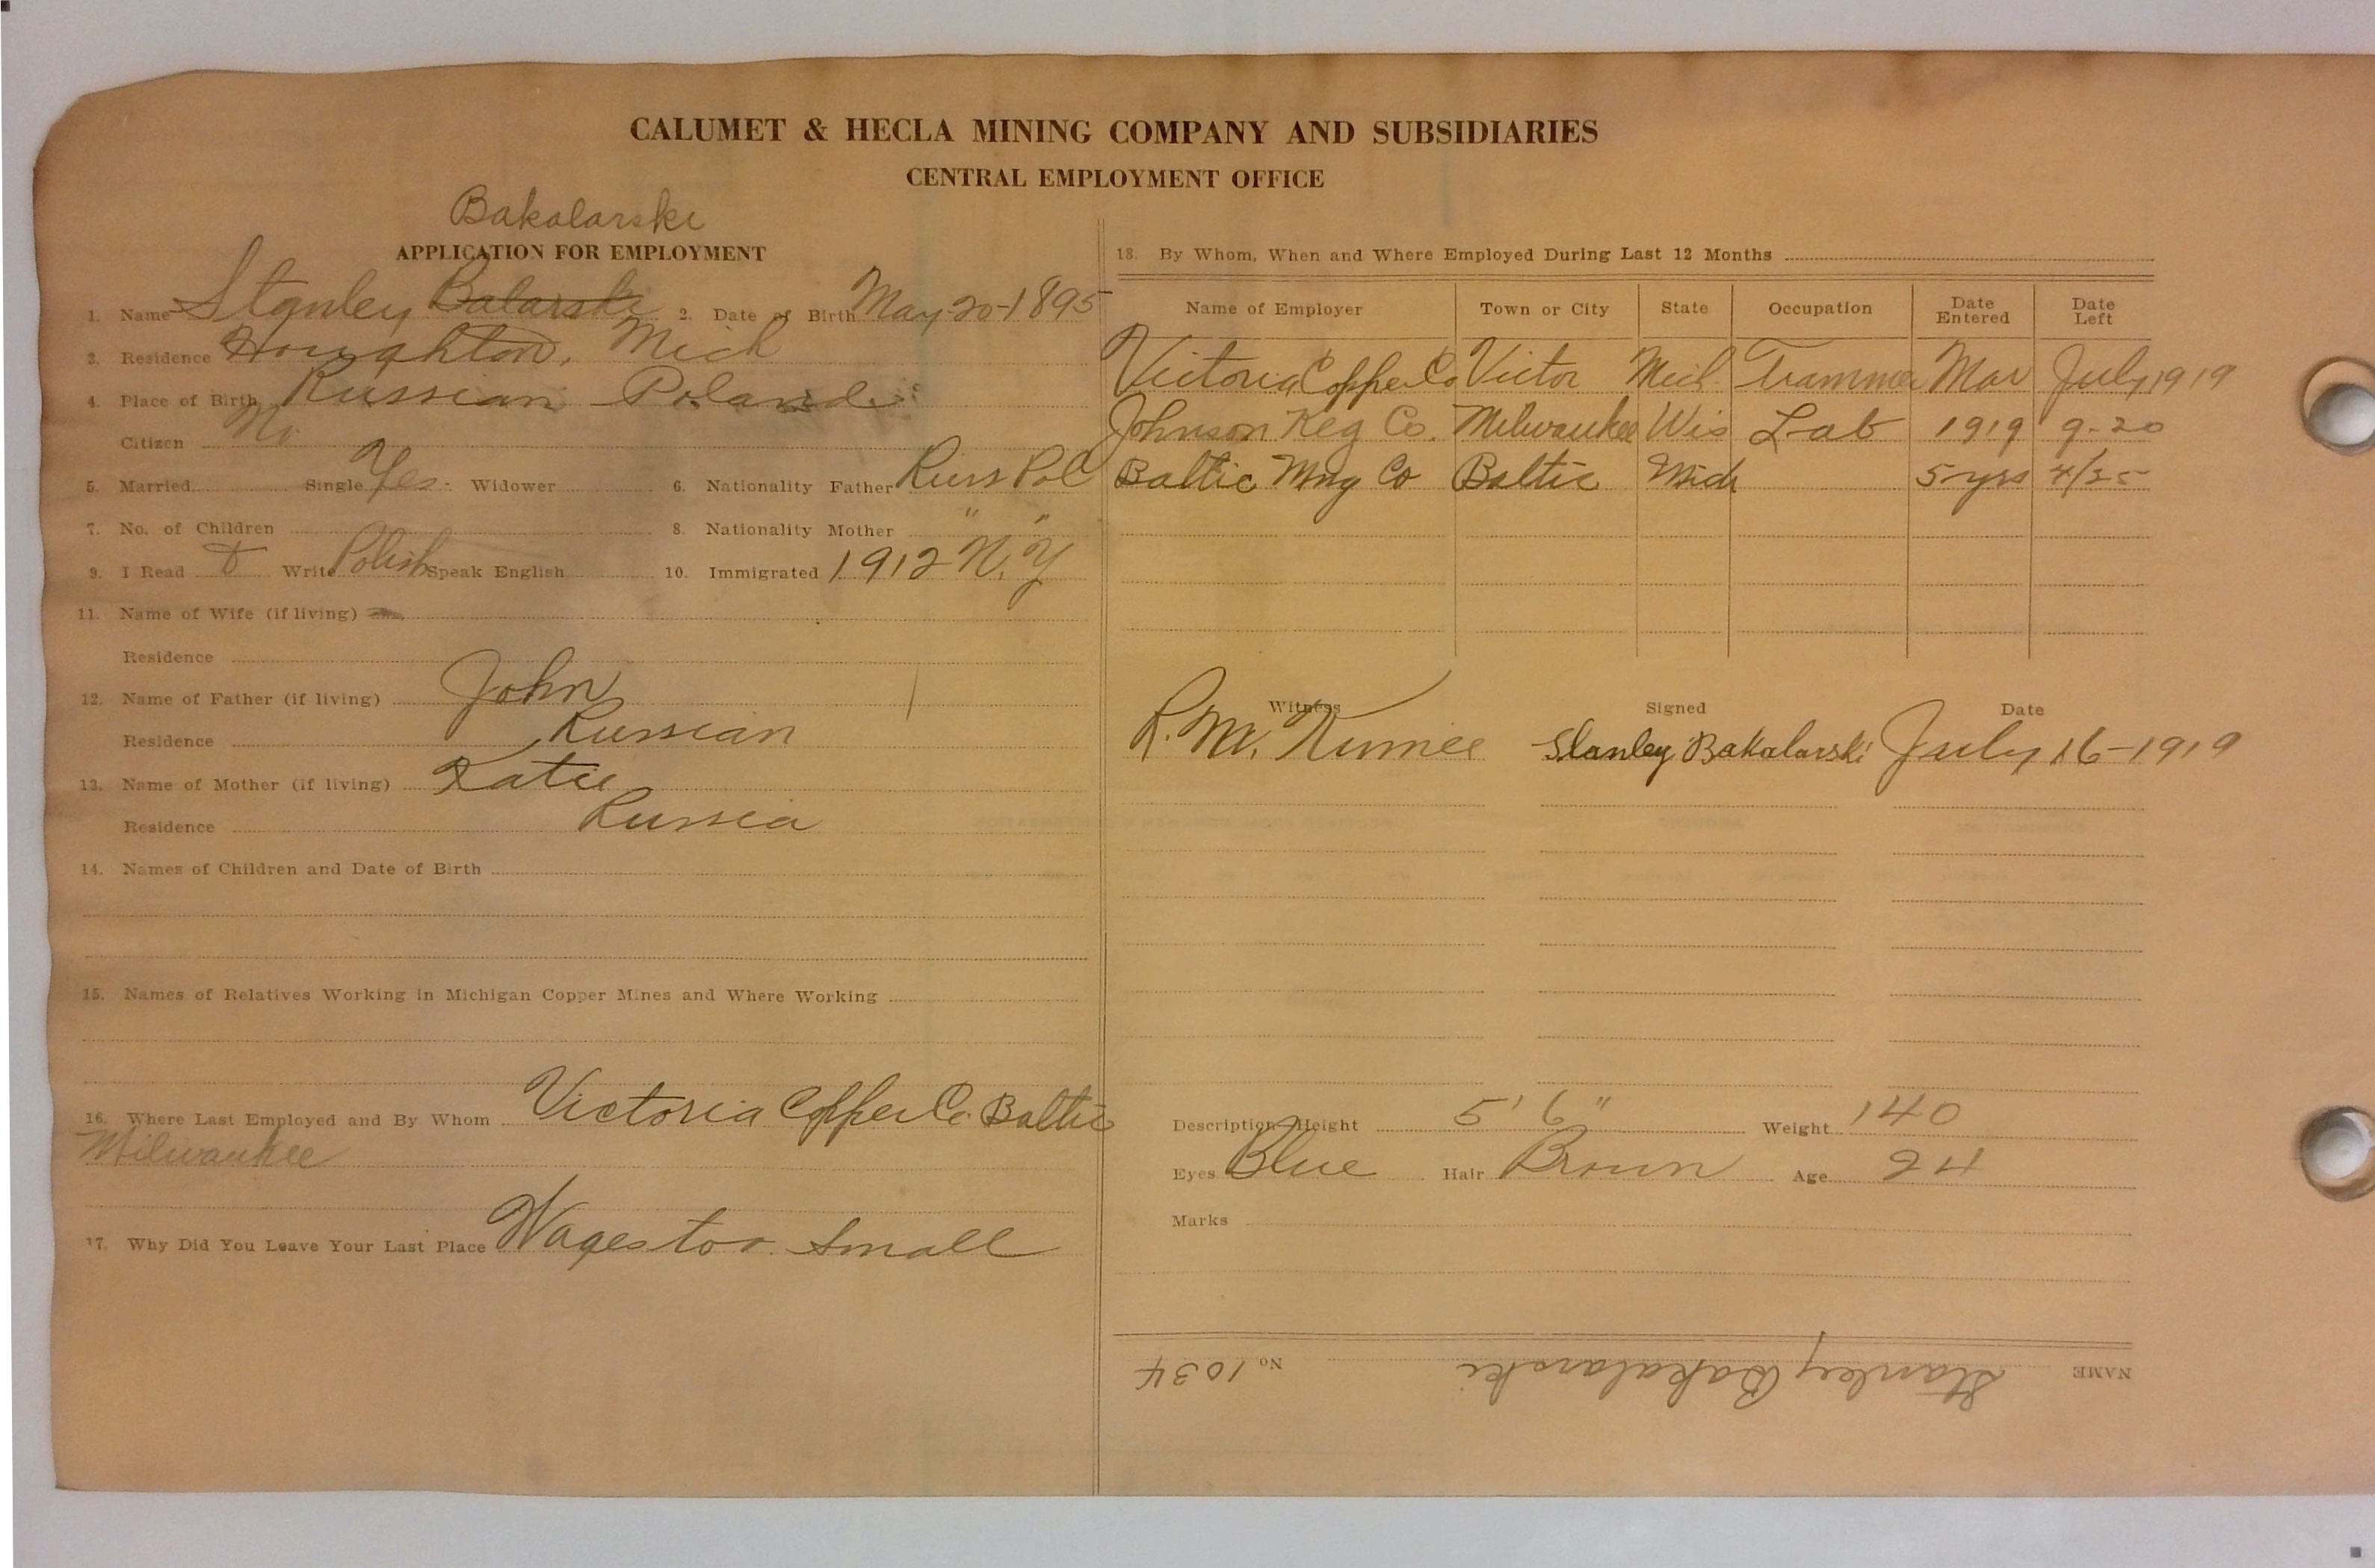 CALUMET & HECLA MINING COMPANY AND SUBSIDIARIES
CENTRAL EMPLOYMENT OFFICE
Bakalarski
APPLICATION FOR EMPLOYMENT
1. Name Stanley Balarski 2. Date of Birth May-20-1895
3. Residence Houghton, Mich
4. Place of Birth Russian Poland
Citizen No
5. Married Single Yes. Widower 6. Nationality Father Russ Pol
7. No. of Children 8. Nationality Mother " "
9. I Read & Write Polish Speak English 10. Immigrated 1912 N.Y
11. Name of Wife (if living)
Residence
12. Name of Father (if living) John
Residence Russian
13. Name of Mother (if living) Katie
Residence Russia
14. Names of Children and Date of Birth
15. Names of Relatives Working in Michigan Copper Mines and Where Working
16. Where Last Employed and By Whom Victoria Copper Co. Baltic
Milwaukee
17. Why Did You Leave Your Last Place Wages too small
18. By Whom, When and Where Employed During Last 12 Months
Name of Employer Town or City State Occupation Date Entered Date Left
Victoria Copper Co Victor Mich. Trammer Mar July 1919
Johnson Keg Co. Milwaukee Wis Lab 1919 9-20
Baltic Mng Co Baltic Mich 5 yrs 4/25
Witness Signed Date
R. M. Stanley Bakalarski July 16-1919
Description—Height 5' 6" Weight 140
Eyes Blue Hair Brown Age 24
Marks
NAME Stanley Bakalarski No 1034